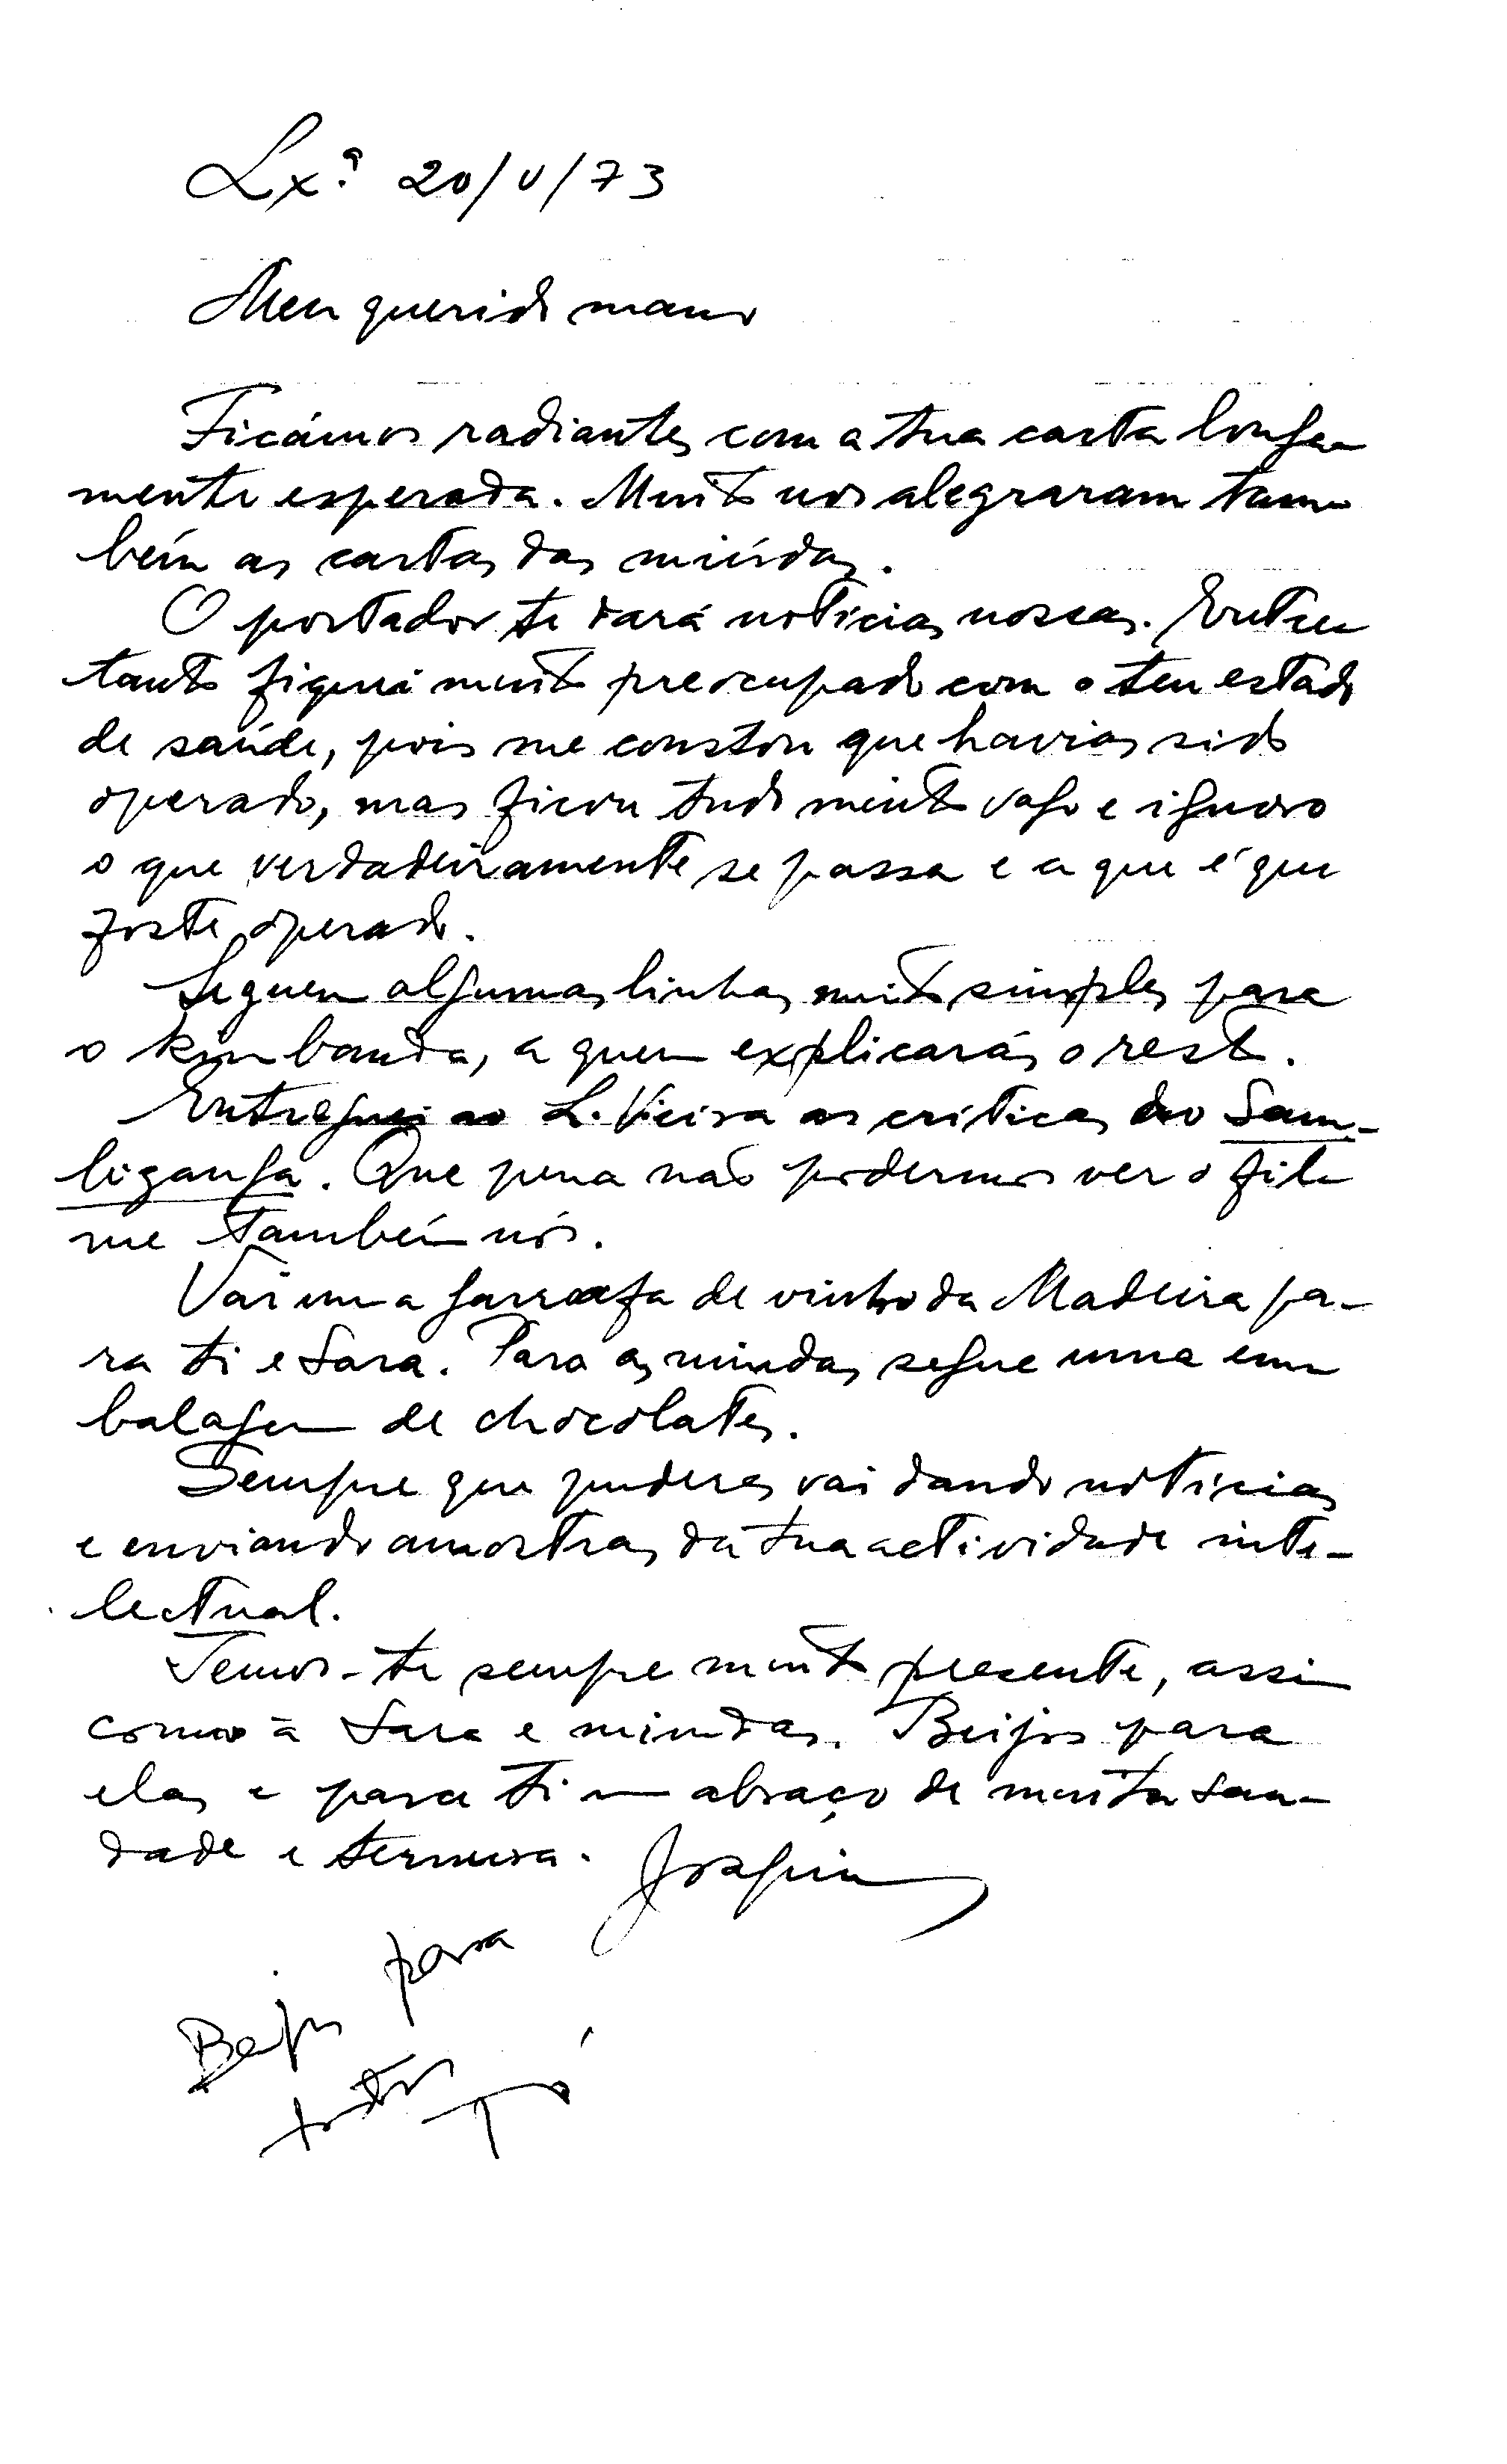 Lxª 20/V/73
Meu querido mano
Ficámos radiantes com a tua carta longa
mente esperada. Muito nos alegraram tam
bém as cartas das miúdas.
O portador te dará notícias nossas. Entre
tanto fiquei muito preocupado com o teu estado
de saúde, pois me constou que havias sido
operado, mas ficou tudo muito vago e ignoro
o que verdadeiramente se passa e a que é que
foste operado.
Seguem algumas linhas muito simples para
o kimbanda, a quem explicarás o resto.
Entreguei ao L. Vieira as críticas do Sam-
bizanga. Que pena não podermos ver o fil
me também nós.
Vai uma garrafa de vinho da Madeira pa-
ra ti e Sara. Para as miudas segue uma em
balagem de chocolates.
Sempre que puderes vai dando notícias
e enviando amostras da tua actividade inte-
lectual.
Temos-te sempre muito presente, assim
como à Sara e miudas. Beijos para
elas e para ti um abraço de muita sau-
dade e ternura. Joaquim
Beijos para
todos